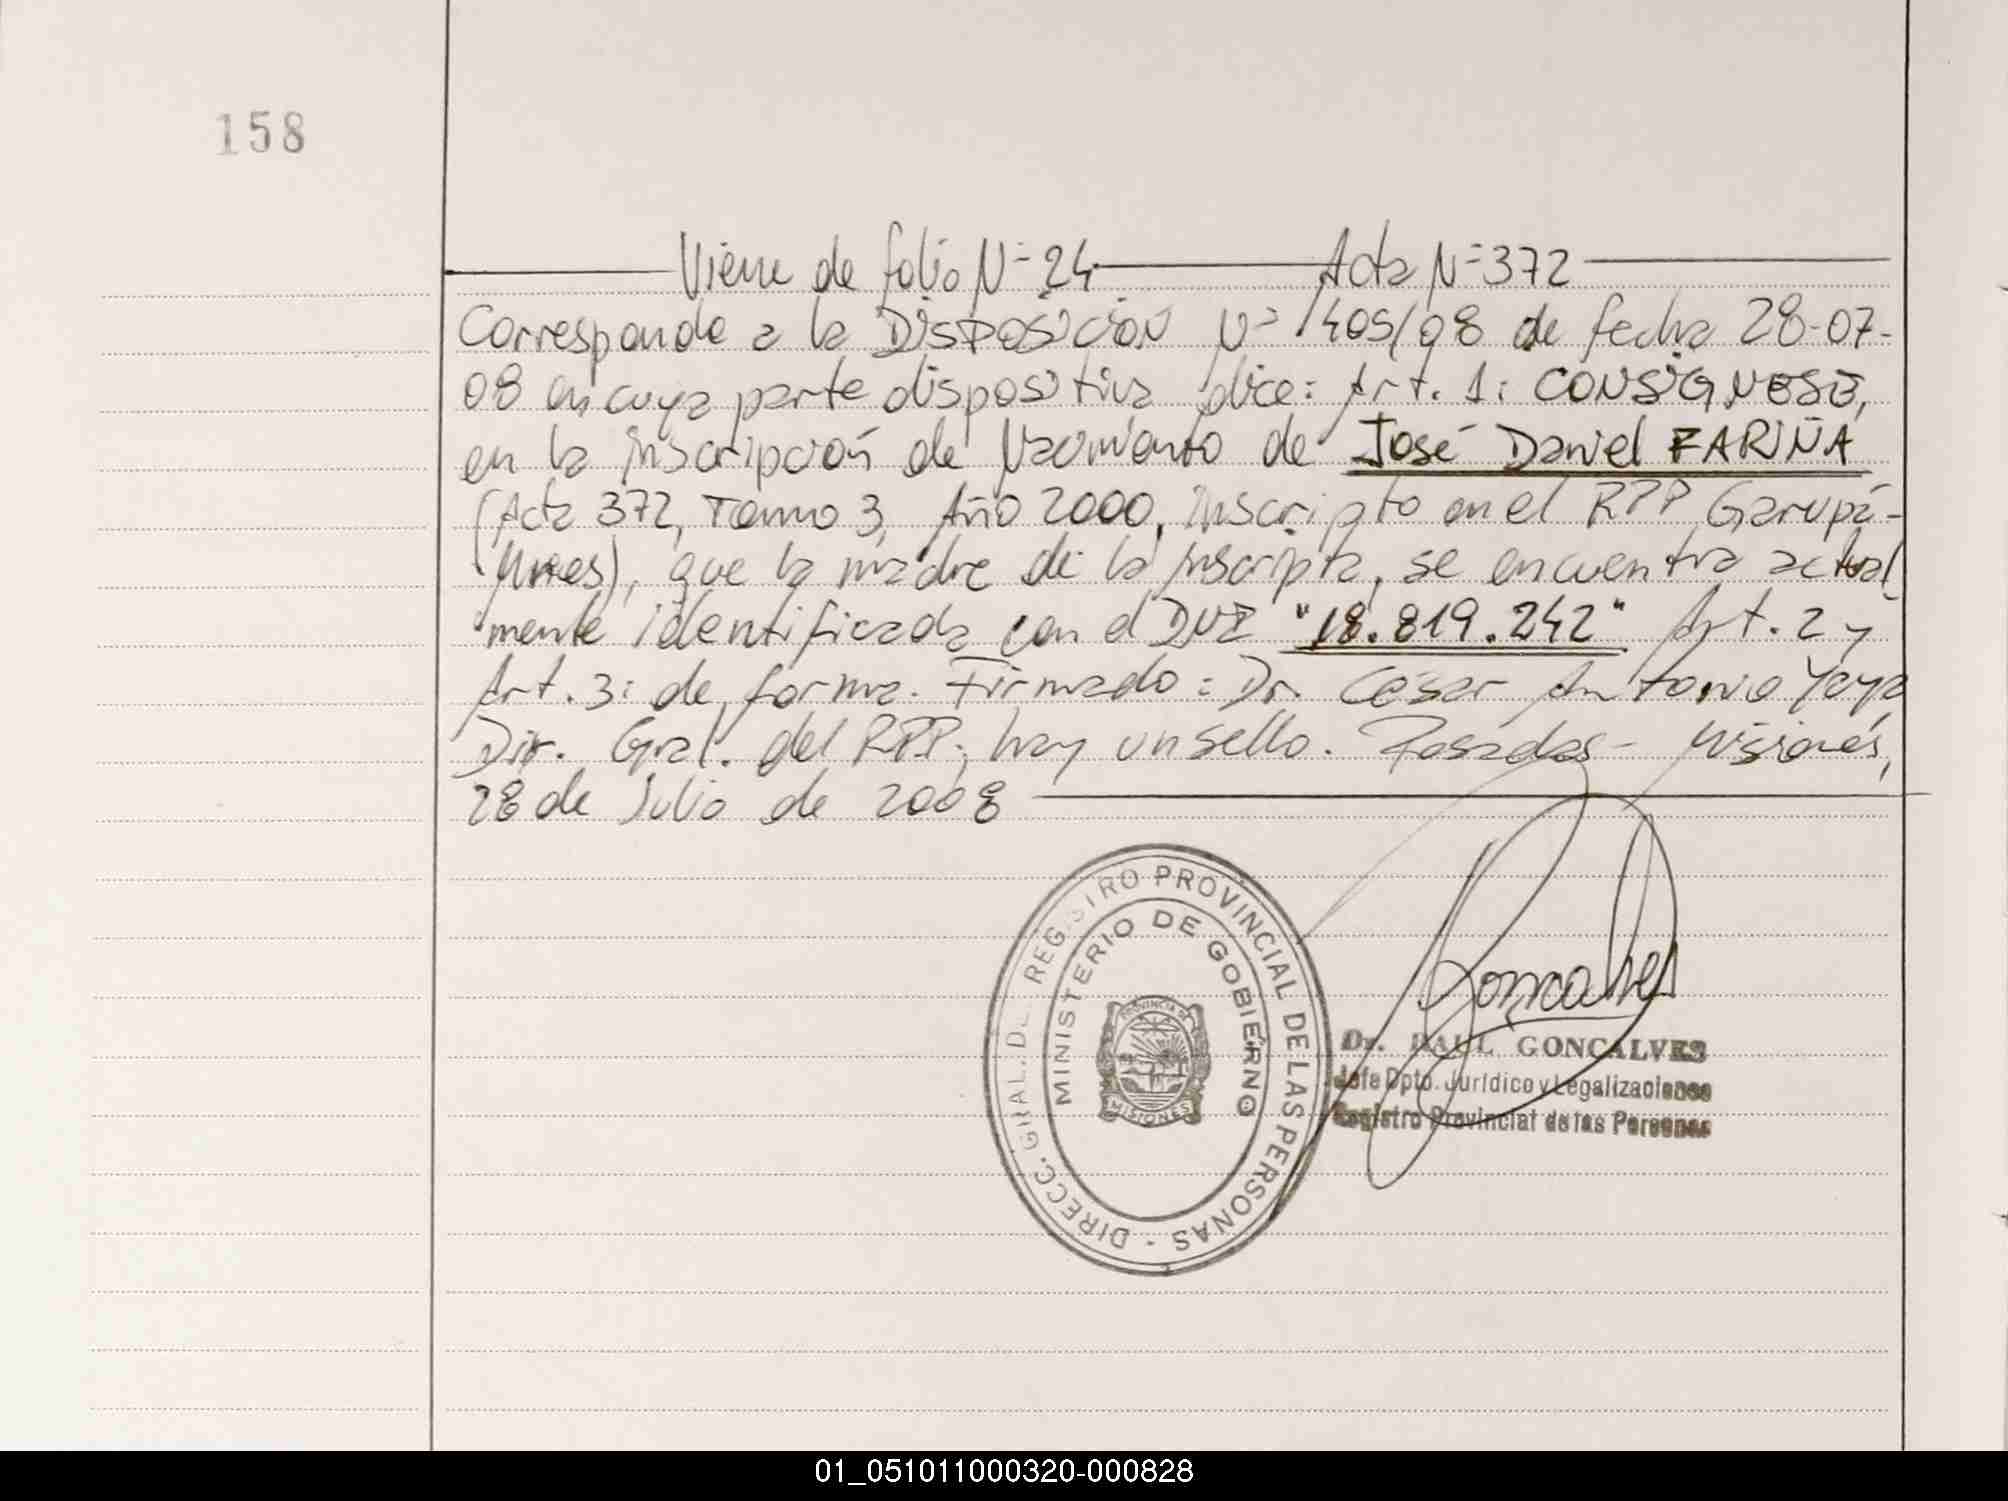 158
Viene de folio Nº 24 Acta Nº 372
Corresponde a la DISPOSICIÓN Nº 1405/08 de fecha 28-07-
08 en cuya parte dispositiva dice: Art. 1: CONSIGNESE,
en la inscripción de Nacimiento de José Daniel FARIÑA
(Acta 372, Tomo 3, Año 2000, inscripto en el RPP Garupá-
Mnes), que la madre de la inscripta, se encuentra actual
mente identificada con el DNI "18.819.242" Art. 2 y
Art. 3: de forma. Firmado: Dr. César Antonio Yaya
Dir. Gral. del RPP; hay un sello. Posadas - Misiones,
28 de Julio de 2008
DIRECC. GRAL. DEL REGISTRO PROVINCIAL DE LAS PERSONAS -
MINISTERIO DE GOBIERNO
PROVINCIA DE
MISIONES
Goncalves
Dr. RAUL GONCALVES
Jefe Dpto. Jurídico y Legalizaciones
Registro Provincial de las Personas
01_051011000320-000828